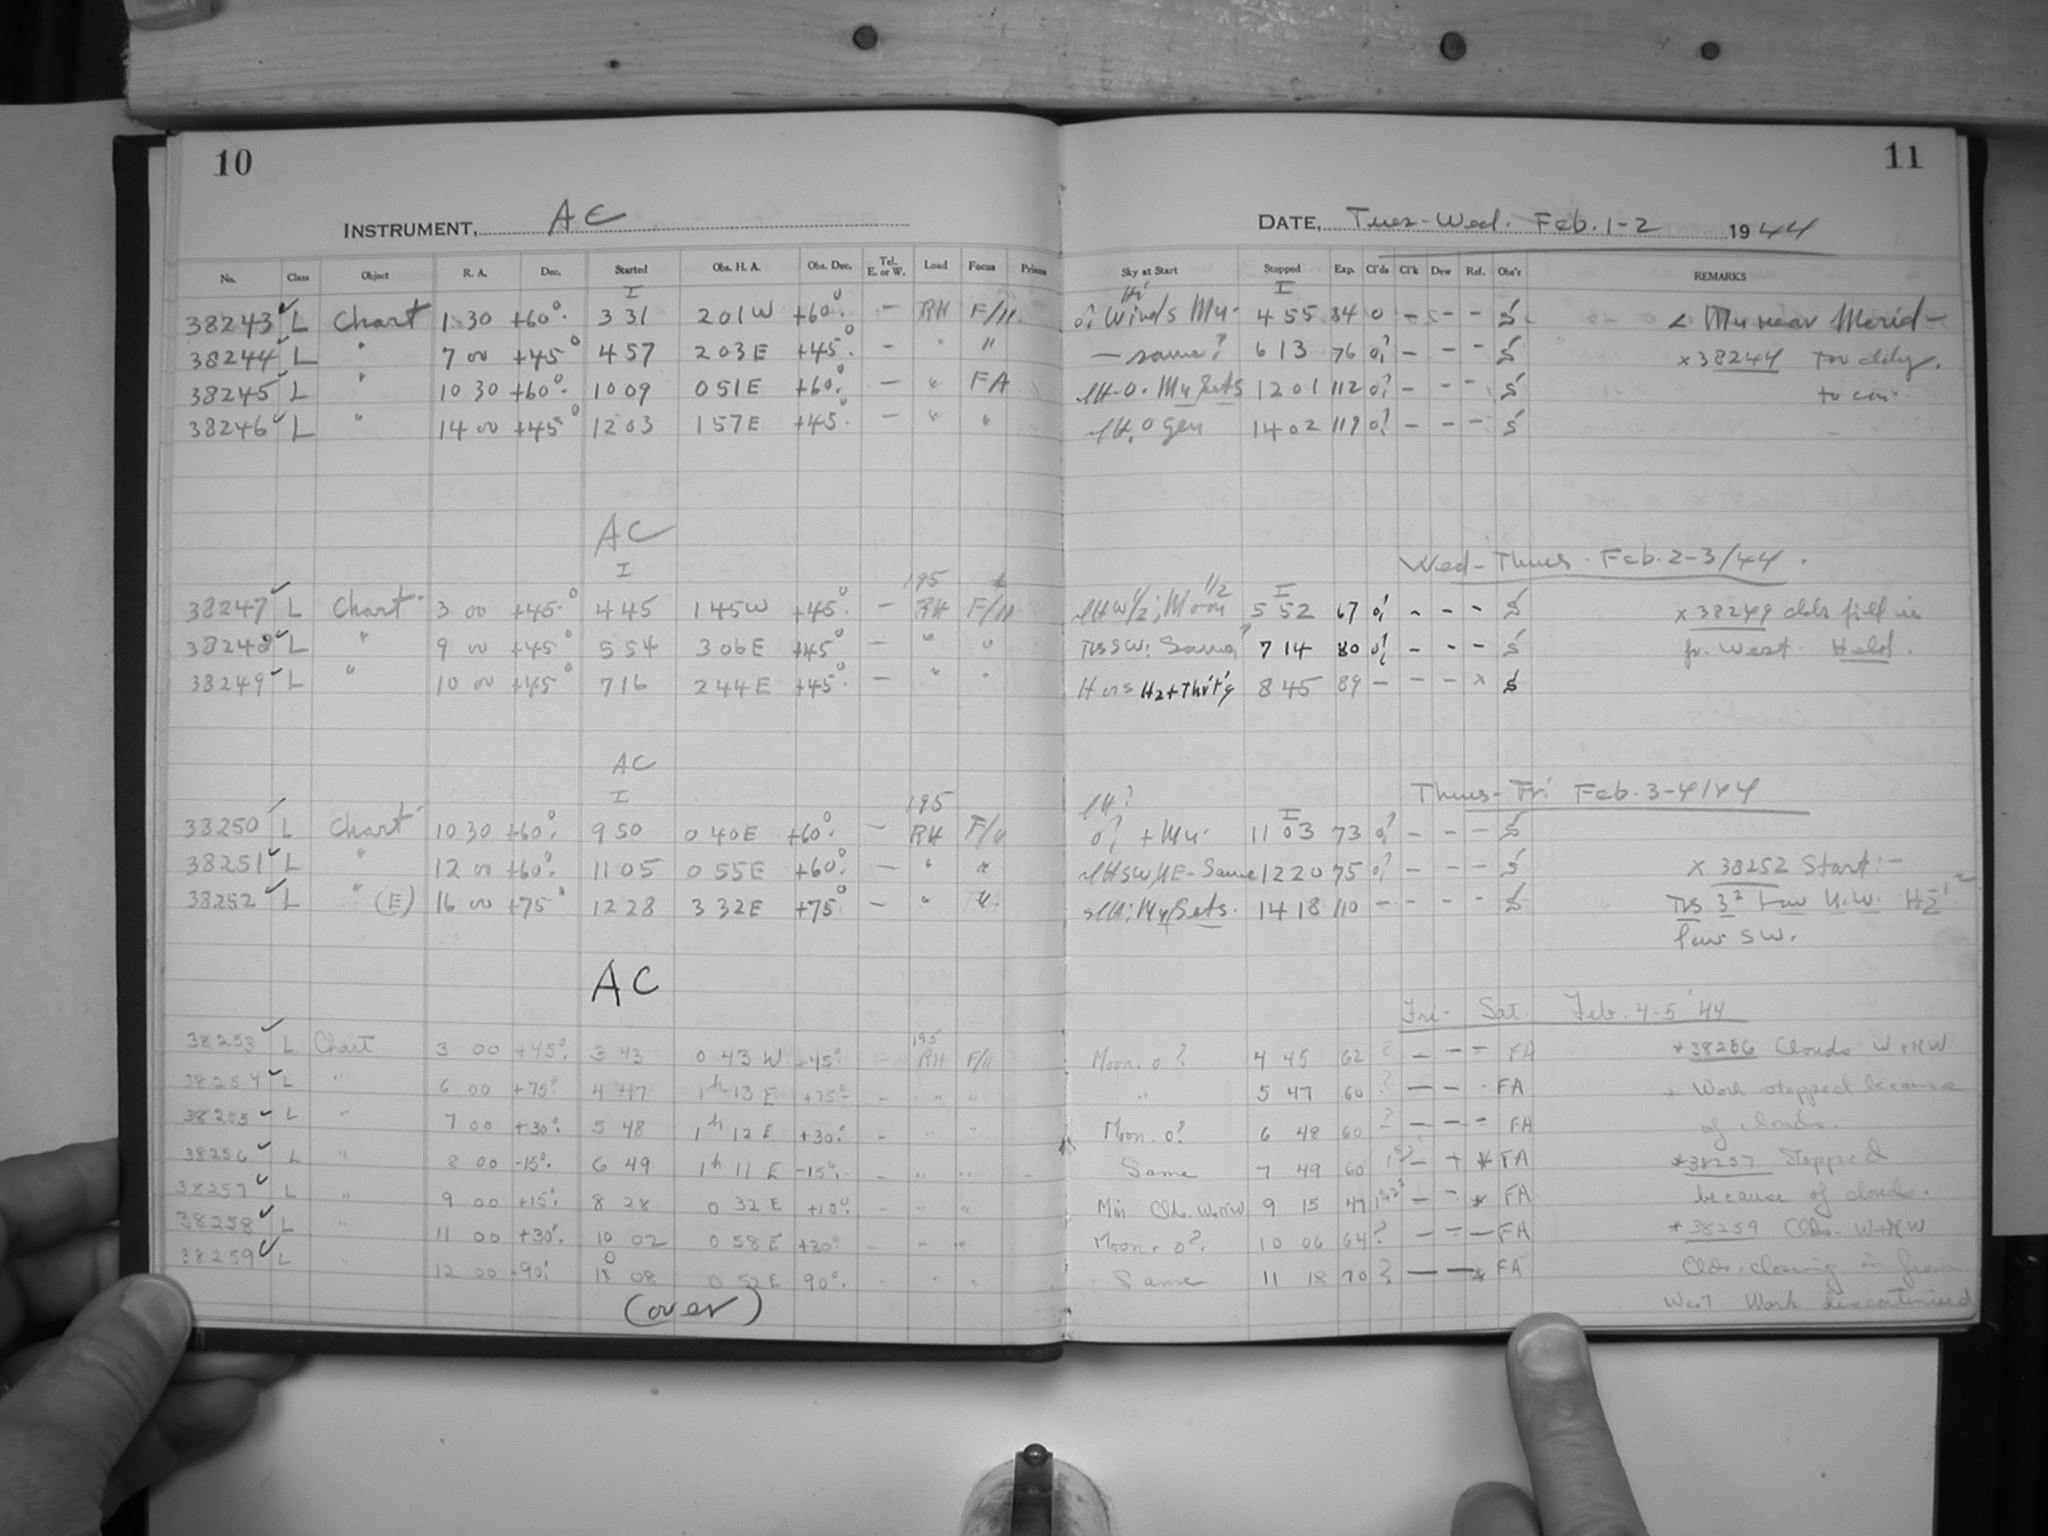 10
11
INSTRUMENT, AC
DATE, Tues-Wed. Feb. 1-2 1944
No. Class Object R. A. Dec. Started Obs. H. A. Obs. Dec. Tel. E. or W. Load Focus Prisms Sky at Start Stopped Exp. Cl'ds Cl'k Dew Ref. Obs'r REMARKS
I I
38243 L Chart 1 30 +60° 3 31 2 01 W +60° - RH F/11 4 55 84 0 - - - S
38244 L " 7 00 +45° 4 57 2 03 E +45° - " " - same? 6 13 76 0? - - - S x 38244
38245 L " 10 30 +60° 10 09 0 51 E +60° - " FA 12 01 112 0? - - - S
38246 L " 14 00 +45° 12 03 1 57 E +45° - " " 14 02 119 0? - - - S
AC
Wed-Thurs. Feb. 2-3/44.
I 195 I
38247 L Chart 3 00 +45° 4 45 1 45 W +45° - RH F/11 5 52 67 0? - - - S x 38249 clds fill in
38248 L " 9 00 +45° 5 54 3 06 E +45° - " " 7 14 80 0? - - - S fr. West. Held.
38249 L " 10 00 +45° 7 16 2 44 E +45° - " " 8 45 89 - - - x S
AC
Thurs-Fri Feb. 3-4/44
I 195 I
38250 L Chart 10 30 +60° 9 50 0 40 E +60° - RH F/11 11 03 73 0? - - - S
38251 L " 12 00 +60° 11 05 0 55 E +60° - " " 12 20 75 0? - - - S x 38252 Start:-
38252 L " (E) 16 00 +75° 12 28 3 32 E +75° - " " 14 18 110 - - - - S
low SW.
AC
Fri- Sat Feb. 4-5 '44
195
38253 L Chart 3 00 +45° 3 43 0 43 W +45° - RH F/11 Moon. 0? 4 45 62 ? - - - FA * 38256 Clouds W+NW
38254 L " 6 00 +75° 4 47 1h 13 E +75° - " " " 5 47 60 ? - - - FA * Work stopped because
38255 L " 7 00 +30° 5 48 1h 12 E +30° - " " Moon. 0? 6 48 60 ? - - - FA of clouds.
38256 L " 8 00 -15° 6 49 1h 11 E -15° - " " Same 7 49 60 - + * FA * 38257 Stopped
38257 L " 9 00 +15° 8 28 0 32 E +15° - " " 9 15 47 - - * FA because of clouds.
38258 L " 11 00 +30° 10 02 0 58 E +30° - " " Moon. 0? 10 06 64 ? - - - FA * 38259 Clds- W+NW
38259 L " 12 00 -90° 10 08 0 52 E 90° - " " Same 11 18 70 ? - - * FA Clds. closing in from
(over) West. Work discontinued